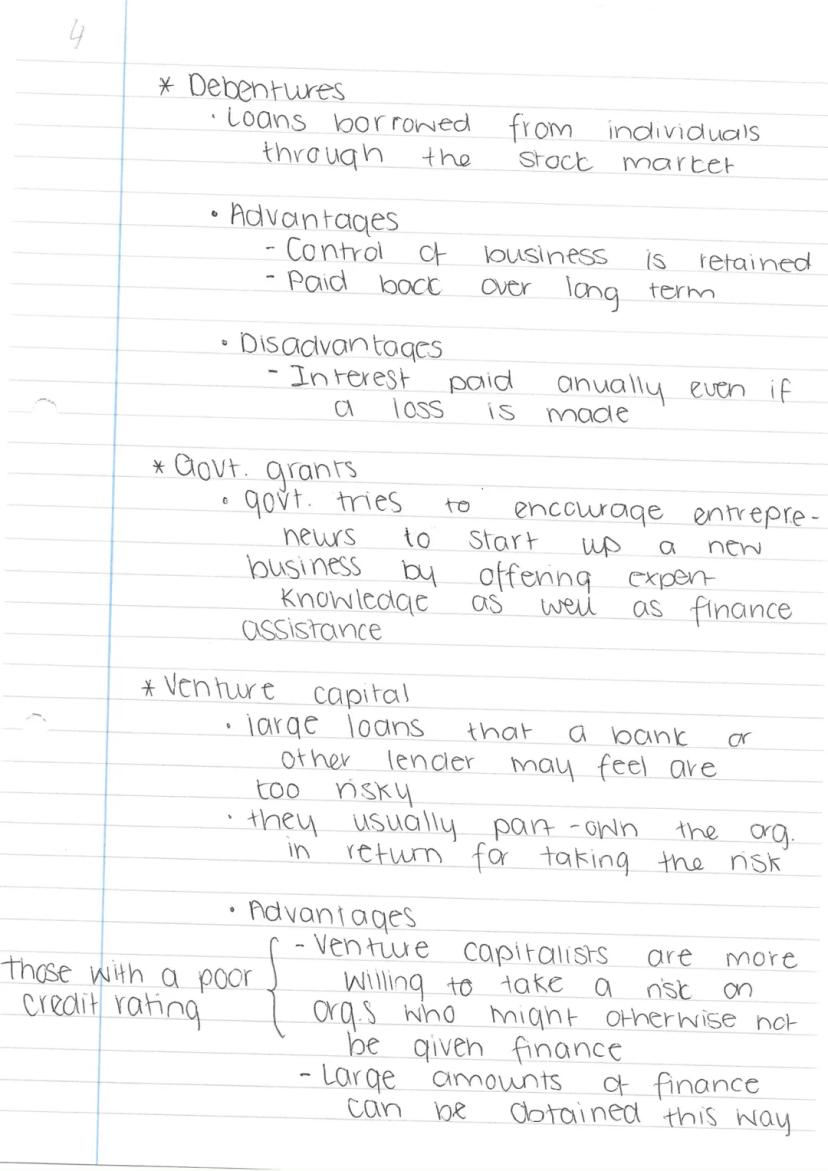 4
* Debentures
· Loans borrowed from individuals
through the stock market
• Advantages
- Control of business is retained
- Paid back over long term
• Disadvantages
- Interest paid anually even if
a loss is made
* Govt. grants
• govt. tries to encourage entrepre-
neurs to start up a new
business by offering expert
knowledge as well as finance
assistance
* Venture capital
• large loans that a bank or
other lender may feel are
too risky
• they usually part-own the org.
in return for taking the risk
• Advantages
- Venture capitalists are more
willing to take a risk on
orgs who might otherwise not
be given finance
those with a poor
credit rating
- Large amounts of finance
can be obtained this way